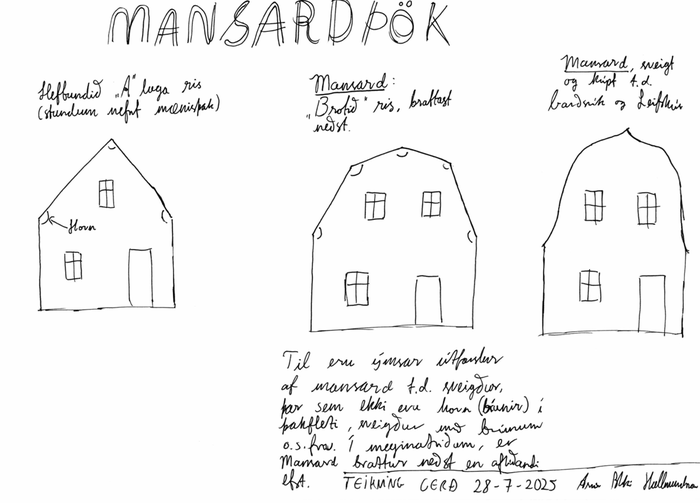 MANSARDÞÖK
Hefbundið „A" laga ris
(stundum nefnt mænisþak)
Horn
Mansard:
„Brotið" ris, brattast
neðst.
Mansard, sveigt
og kúpt t.d.
og
Til eru ýmsar útfærslur
af mansard t.d. sveigður,
þar sem ekki eru horn (brúnir) í
þakfleti, sveigður með brúnum
o.s.frv. Í meginatriðum, er
Mansard brattur neðst en aflíðandi
efst.
TEIKNING GERÐ 28-7-2025